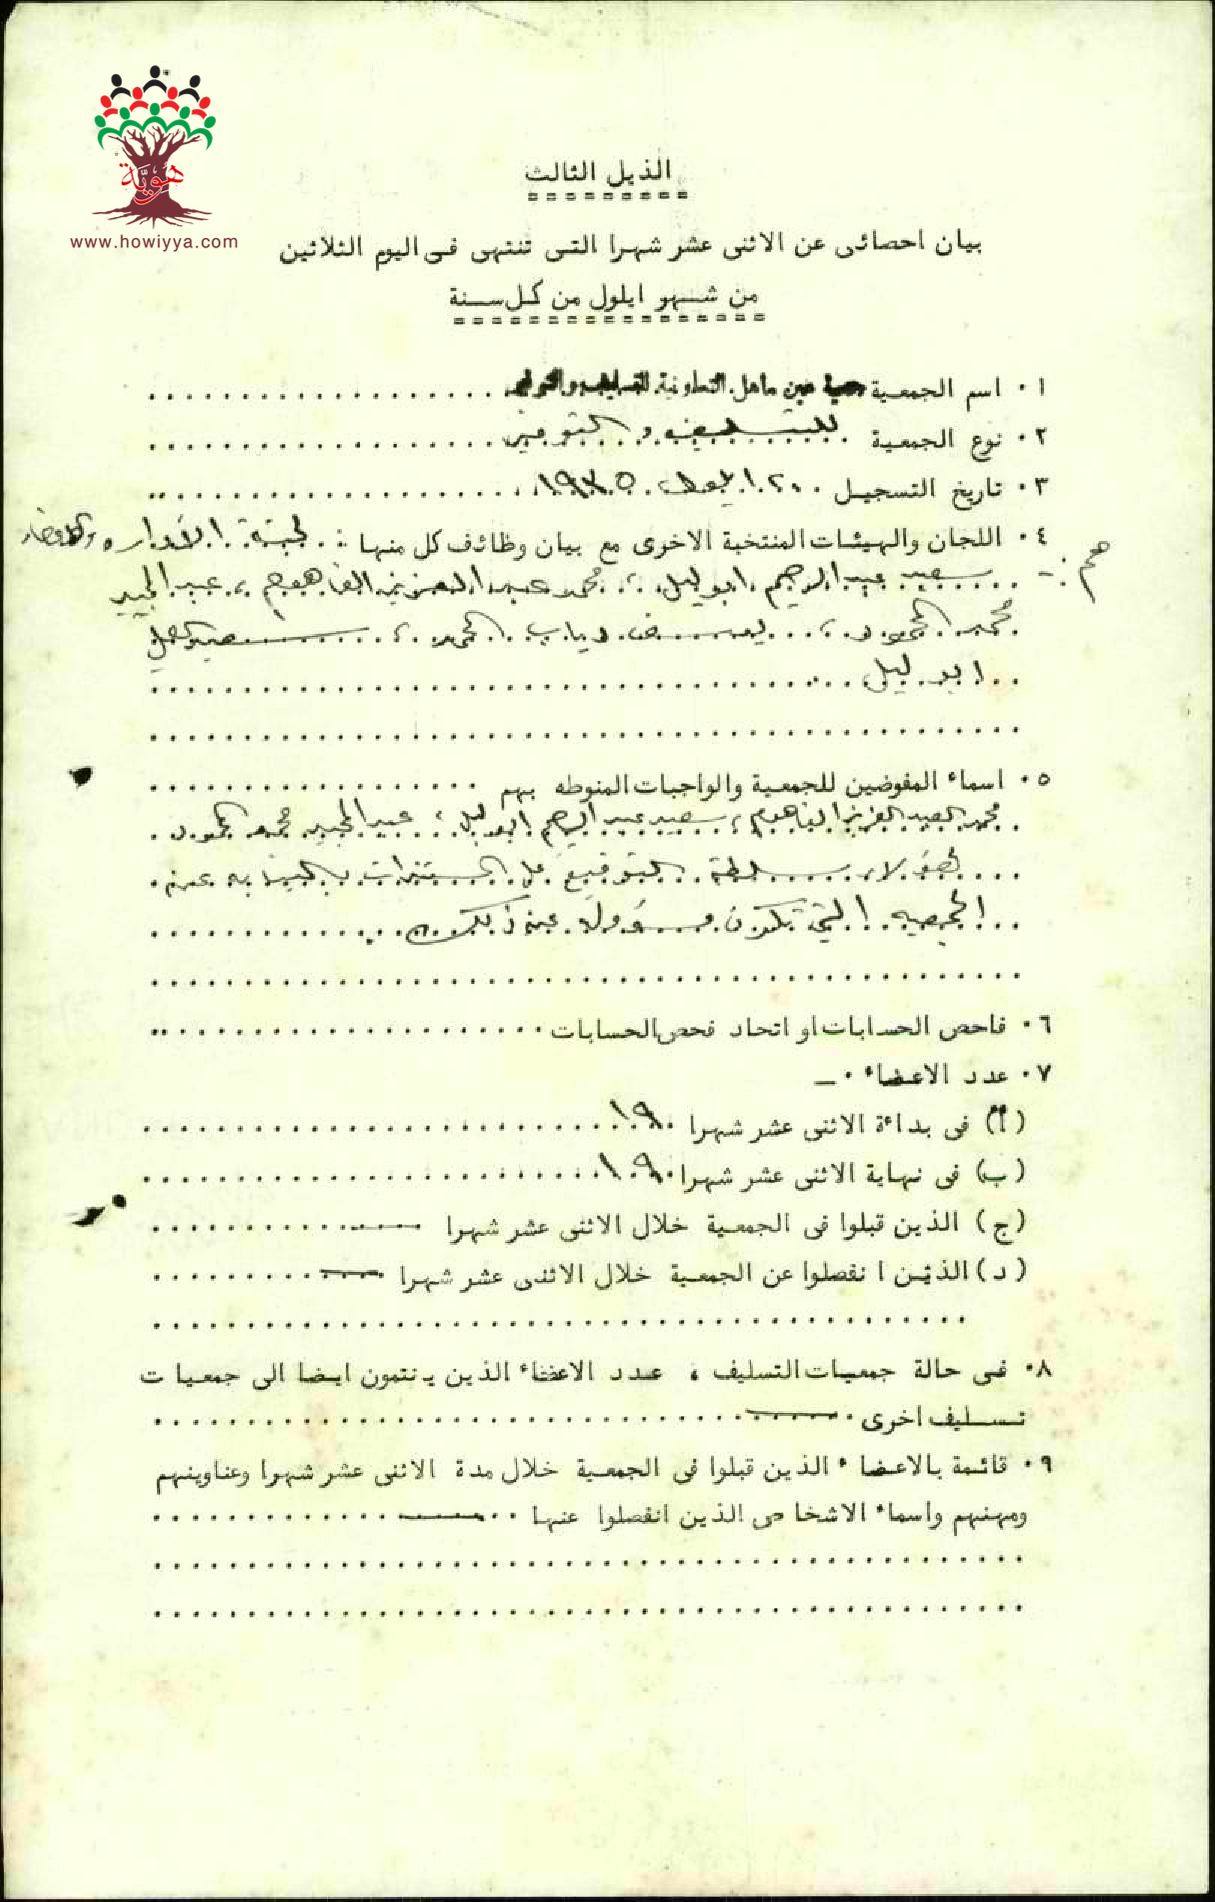 هوية
www.howiyya.com
الذيل الثالث
بيان احصائى عن الاثنى عشر شهرا التى تنتهى فى اليوم الثلاثين
من شهو ايلول من كل سنة
١٠ اسم الجمعية جمعية عين ماهل التعاونية للتسليف والتوفير
٢٠ نوع الجمعية للتسليف و التوفير
٣٠ تاريخ التسجيل ٢٠ ايلول ١٩٣٥
٤٠ اللجان والهيئات المنتخبة الاخرى مع بيان وظائف كل منها : لجنة الأداره
هم :- سعيد عبد الرحيم ابو ليل ، محمد عبد العزيز الفاهوم ، عبد المجيد
محمد المحمود ، يوسف دياب الحمد ، سعيد
ابو ليل
٥٠ اسماء المفوضين للجمعية والواجبات المنوطه بهم
محمد العبد العزيز الفاهوم ، سعيد عبد الرحيم ابو ليل ، عبد المجيد محمد المحمود
لهؤلاء سلطة التوقيع على المستندات بالنيابه عن
الجمعيه التي تكون مسؤوله عن ذلك
٦٠ فاحص الحسابات او اتحاد فحص الحسابات
٧٠ عدد الاعضاء ٠ —
(أ) فى بداءة الاثنى عشر شهرا ١٩
(ب) فى نهاية الاثنى عشر شهرا ١٩
(ج) الذين قبلوا فى الجمعية خلال الاثنى عشر شهرا —
(د) الذين انفصلوا عن الجمعية خلال الاثنى عشر شهرا —
٨٠ فى حالة جمعيات التسليف ، عدد الاعضاء الذين ينتمون ايضا الى جمعيات
تسليف اخرى —
٩٠ قائمة بالاعضاء الذين قبلوا فى الجمعية خلال مدة الاثنى عشر شهرا وعناوينهم
ومهنهم واسماء الاشخاص الذين انفصلوا عنها —